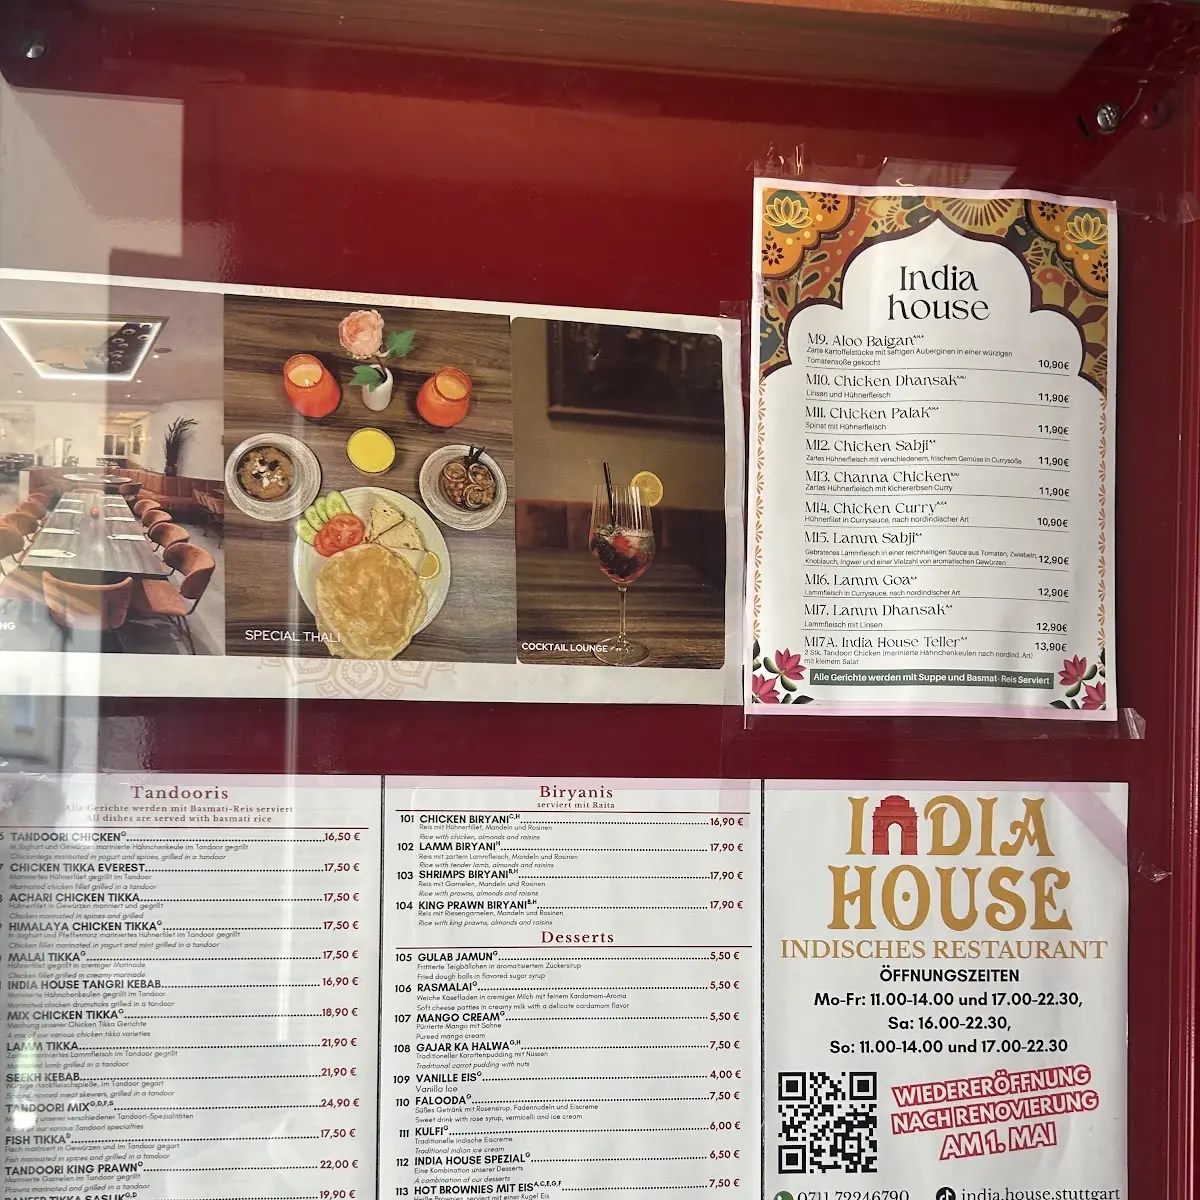 India
house
M9. Aloo Baigan
Zarte Kartoffelstücke mit saftigen Auberginen in einer würzigen
Tomatensoße gekocht
10,90€
M10. Chicken Dhansak
Linsen und Hühnerfleisch
11,90€
M11. Chicken Palak
Spinat mit Hühnerfleisch
11,90€
M12. Chicken Sabji
Zartes Hühnerfleisch mit verschiedenem, frischem Gemüse in Currysoße
11,90€
M13. Channa Chicken
Zartes Hühnerfleisch mit Kichererbsen Curry
11,90€
M14. Chicken Curry
Hühnerfilet in Currysauce, nach nordindischer Art
10,90€
M15. Lamm Sabji
Gebratenes Lammfleisch in einer reichhaltigen Sauce aus Tomaten, Zwiebeln,
Knoblauch, Ingwer und einer Vielzahl von aromatischen Gewürzen
12,90€
M16. Lamm Goa
Lammfleisch in Currysauce, nach nordindischer Art
12,90€
M17. Lamm Dhansak
Lammfleisch mit Linsen
12,90€
M17A. India House Teller
2 Stk. Tandoori Chicken (marinierte Hähnchenkeulen nach nordind. Art)
mit kleinem Salat
13,90€
Alle Gerichte werden mit Suppe und Basmat-Reis Serviert
NG
SPECIAL THALI
COCKTAIL LOUNGE
Tandooris
Alle Gerichte werden mit Basmati-Reis serviert
All dishes are served with basmati rice
TANDOORI CHICKEN 16,50 €
In Joghurt und Gewürzen marinierte Hähnchenkeule im Tandoor gegrillt
Chickenlegs marinated in yogurt and spices, grilled in a tandoor
CHICKEN TIKKA EVEREST 17,50 €
Mariniertes Hühnerfilet gegrillt im Tandoor
Marinated chicken fillet grilled in a tandoor
ACHARI CHICKEN TIKKA 17,50 €
Hühnerfilet in Gewürzen mariniert und gegrillt
Chicken marinated in spices and grilled
HIMALAYA CHICKEN TIKKA 17,50 €
In Joghurt und Pfefferminz mariniertes Hühnerfilet im Tandoor gegrillt
Chicken fillet marinated in yogurt and mint grilled in a tandoor
MALAI TIKKA 17,50 €
Hühnerfilet gegrillt in cremiger Marinade
Chicken fillet grilled in creamy marinade
INDIA HOUSE TANGRI KEBAB 16,90 €
Marinierte Hähnchenkeulen gegrillt im Tandoor
Marinated chicken drumsticks grilled in a tandoor
MIX CHICKEN TIKKA 18,90 €
Mischung unserer Chicken Tikka Gerichte
A mix of our various chicken tikka varieties
LAMM TIKKA 21,90 €
Zartes mariniertes Lammfleisch im Tandoor gegrillt
Marinated lamb grilled in a tandoor
SEEKH KEBAB 21,90 €
Würzige Hackfleischspieße, im Tandoor gegart
Spiced minced meat skewers, grilled in a tandoor
TANDOORI MIX 24,90 €
unserer verschiedenel Tandoori-Spezialitäten
of our various Tandoori specialties
FISH TIKKA 17,50 €
Fisch mariniert in Gewürzen und im Tandoor gegart
Fish marinated in spices and grilled in a tandoor
TANDOORI KING PRAWN 22,00 €
Marinierte Garnelen im Tandoor gegrillt
Marinated prawns grilled in a tandoor
PANEER TIKKA SASLIK 19,90 €
Biryanis
serviert mit Raita
101 CHICKEN BIRYANI 16,90 €
Reis mit Hühnerfilet, Mandeln und Rosinen
Rice with chicken, almonds and raisins
102 LAMM BIRYANI 17,90 €
Reis mit zartem Lammfleisch, Mandeln und Rosinen
Rice with tender lamb, almonds and raisins
103 SHRIMPS BIRYANI 17,90 €
Reis mit Garnelen, Mandeln und Rosinen
Rice with prawns, almonds and raisins
104 KING PRAWN BIRYANI 17,90 €
Reis mit Riesengarnelen, Mandeln und Rosinen
Rice with king prawns, almonds and raisins
Desserts
105 GULAB JAMUN 5,50 €
Frittierte Teigbällchen in aromatisiertem Zuckersirup
Fried dough balls in flavored sugar syrup
106 RASMALAI 5,50 €
Weiche Käsefladen in cremiger Milch mit feinem Kardamom-Aroma
Soft cheese patties in creamy milk with a delicate cardamom flavor
107 MANGO CREAM 5,50 €
Pürrierte Mango mit Sahne
Pureed mango cream
108 GAJAR KA HALWA 7,50 €
Traditioneller Karottenpudding mit Nüssen
Traditional carrot pudding with nuts
109 VANILLE EIS 4,00 €
Vanilla Ice
110 FALOODA 7,50 €
Süßes Getränk mit Rosensirup, Fadennudeln und Eiscreme
Sweet drink with rose syrup, vermicelli and ice cream
111 KULFI 6,00 €
Traditionelle indische Eiscreme
Traditional indian ice cream
112 INDIA HOUSE SPEZIAL 6,50 €
Eine Kombination unserer Desserts
A combination of our desserts
113 HOT BROWNIES MIT EIS 7,50 €
Heiße Brownies, serviert mit einer Kugel Eis
INDIA
HOUSE
INDISCHES RESTAURANT
ÖFFNUNGSZEITEN
Mo-Fr: 11.00-14.00 und 17.00-22.30,
Sa: 16.00-22.30,
So: 11.00-14.00 und 17.00-22.30
WIEDERERÖFFNUNG
NACH RENOVIERUNG
AM 1. MAI
0711 72246790
india.house.stuttgart